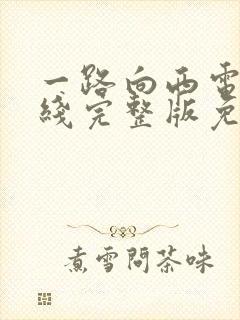 一路向西电
线完整版免
煮雪問茶味